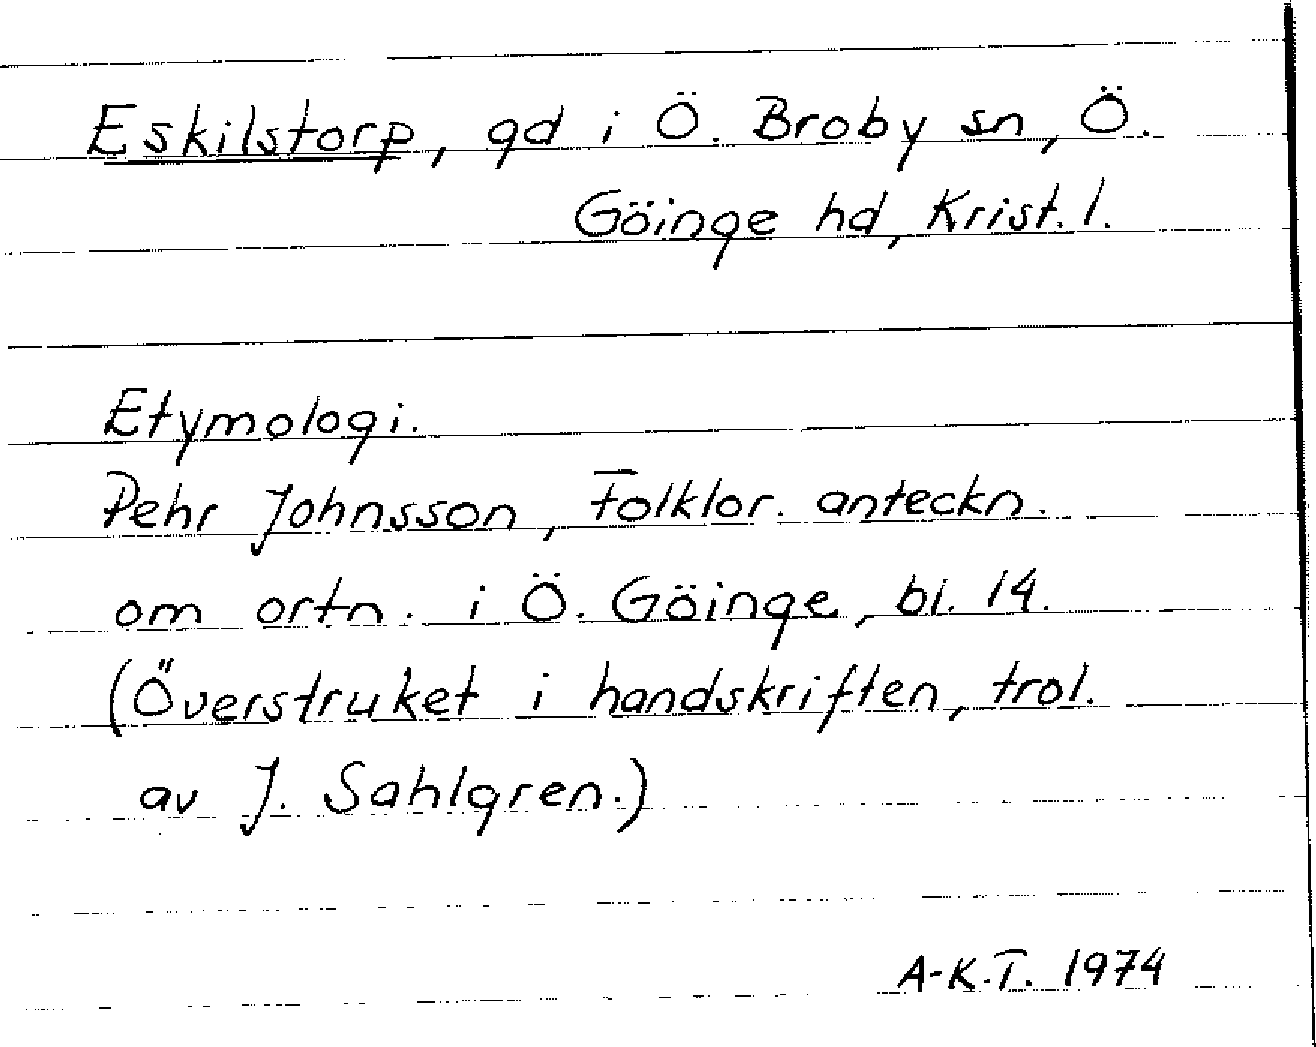 Eskilstorp, gd i Ö. Broby sn, Ö.
Göinge hd, Krist. l.
Etymologi.
Pehr Johnsson, Folklor. anteckn.
om ortn. i Ö. Göinge, bl. 14.
(Överstruket i handskriften, trol.
av J. Sahlgren.)
A-K.T. 1974